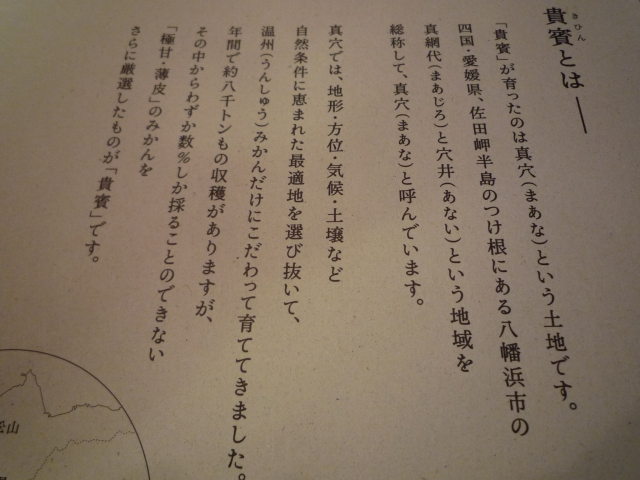 貴賓とは──
きひん
「貴賓」が育ったのは真穴（まあな）という土地です。
四国・愛媛県、佐田岬半島のつけ根にある八幡浜市の
真網代（まあじろ）と穴井（あない）という地域を
総称して、真穴（まあな）と呼んでいます。
真穴では、地形・方位・気候・土壌など
自然条件に恵まれた最適地を選び抜いて、
温州（うんしゅう）みかんだけにこだわって育ててきました。
年間で約八千トンもの収穫がありますが、
その中からわずか数%しか採ることのできない
「極甘・薄皮」のみかんを
さらに厳選したものが「貴賓」です。
松山